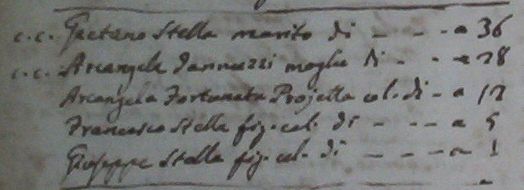 c.c. Gaetano Stella marito di - - - a 36
c.c. Arcangela Iannuzzi moglie di - - a 28
Arcangela Fortunata Projetta col. di - a 12
Francesco Stella fig. col. di - - - a 5
Giuseppe Stella fig. col. di - - - - a 1